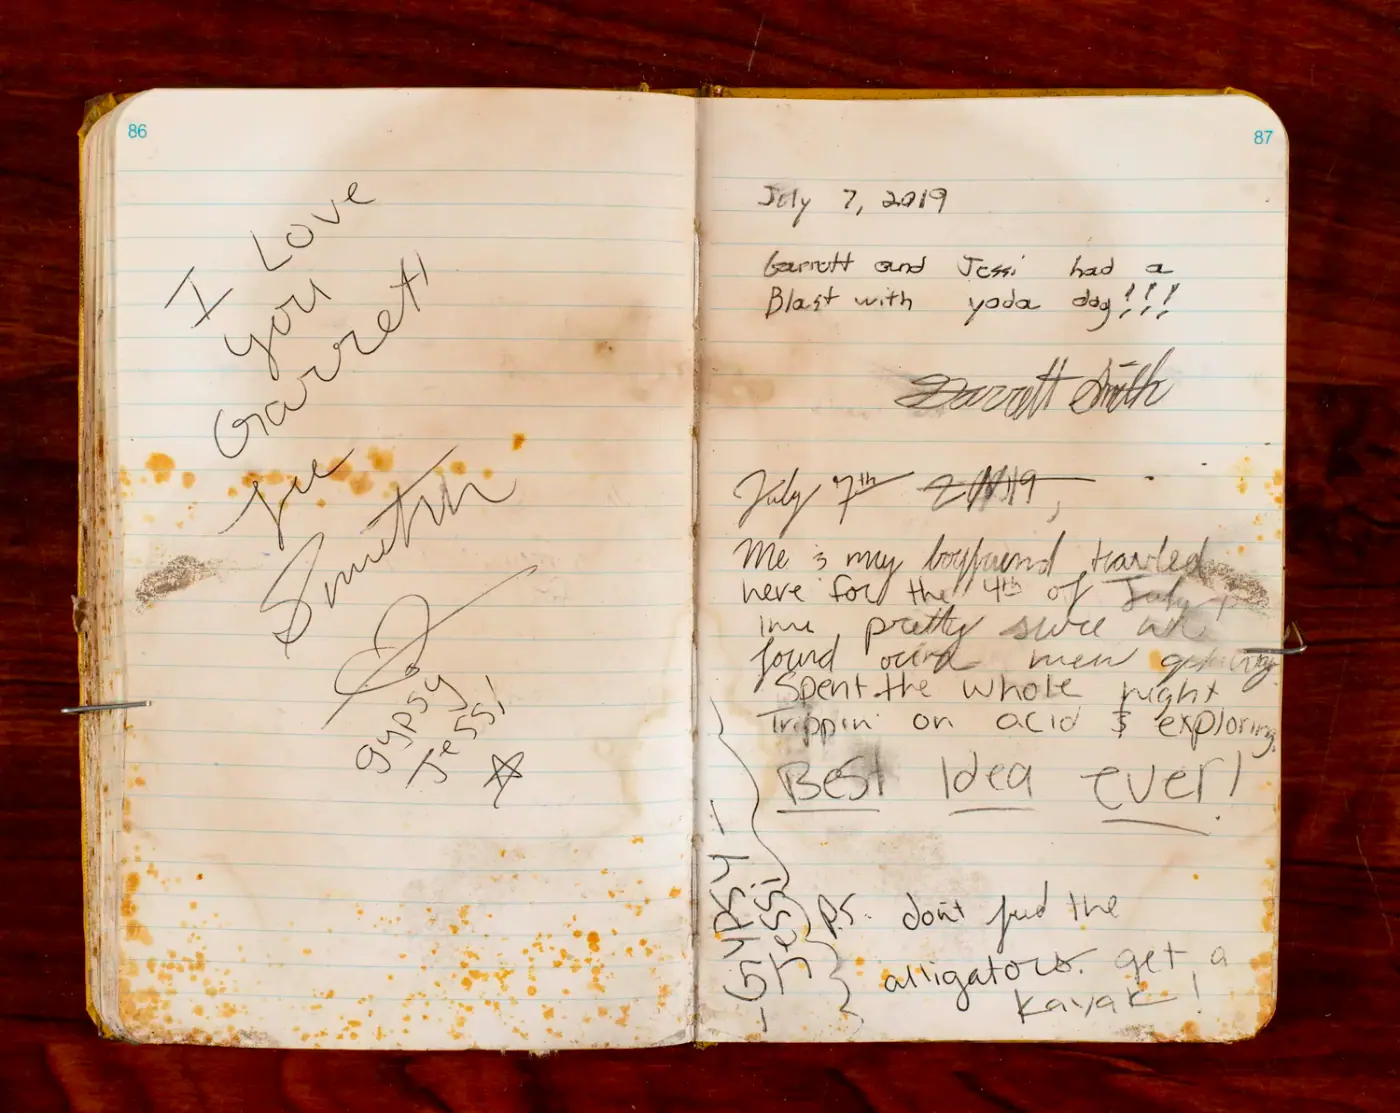 86
I Love
you
Garrett
Lee
Smith
gypsy
Jessi
87
July 7, 2019
Garrett and Jessi had a
Blast with yoda dog!!!
Garrett Smith
July 7th 2019,
Me & my boyfriend travled
here for the 4th of July,
imu pretty sure we
found ourd new
Spent the whole night
Trippin' on acid & exploring.
Best Idea ever!
- Gypsy -
Jessi
P.S. don't feed the
alligators. get a
kayak!